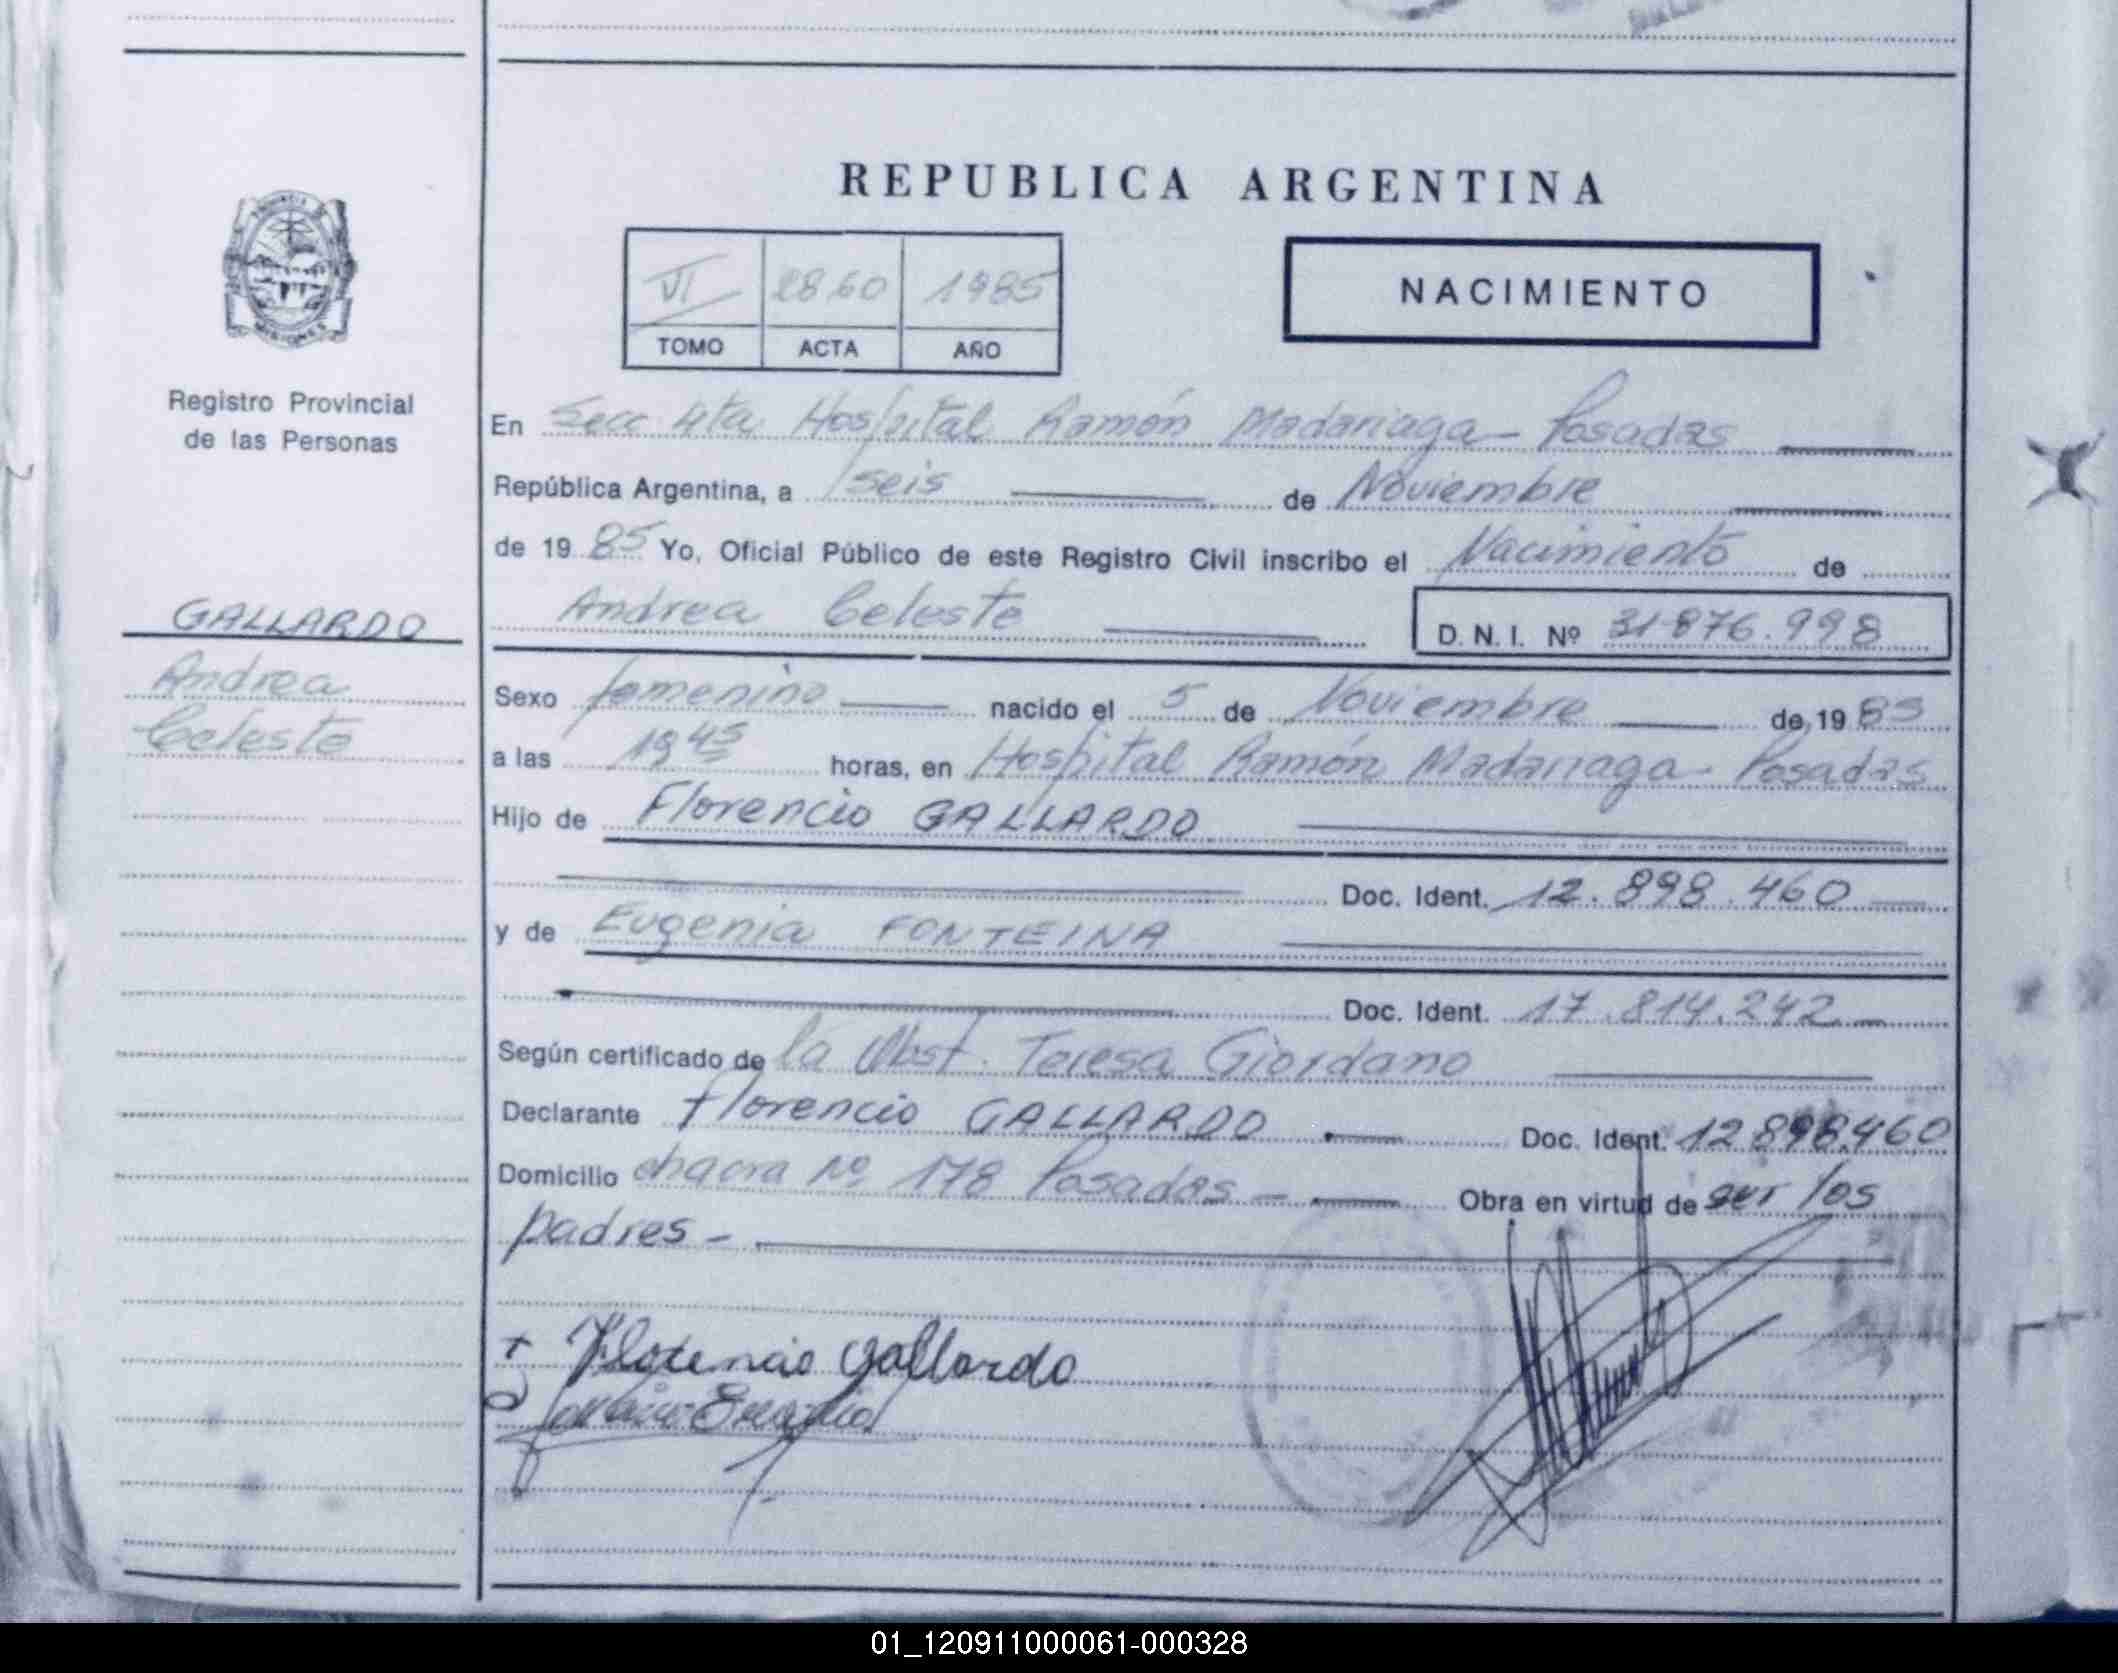 REPUBLICA ARGENTINA
VI 2860 1985
TOMO ACTA AÑO
NACIMIENTO
PROVINCIA DE
MISIONES
Registro Provincial
de las Personas
GALLARDO
Andrea
Celeste
En Secc. 4ta Hospital Ramón Madariaga - Posadas
República Argentina, a seis de Noviembre
de 19 85 Yo, Oficial Público de este Registro Civil inscribo el Nacimiento de
Andrea Celeste D.N.I. Nº 31.876.998
Sexo femenino nacido el 5 de Noviembre de 19 85
a las 19 45 horas, en Hospital Ramón Madariaga - Posadas
Hijo de Florencio GALLARDO
Doc. Ident. 12.898.460
y de Eugenia FONTEINA
Doc. Ident. 17.814.242
Según certificado de la Obst. Teresa Giordano
Declarante Florencio GALLARDO Doc. Ident. 12.898.460
Domicilio chacra Nº 178 Posadas - Obra en virtud de ser los
padres -
+ Florencio gallardo
01_120911000061-000328